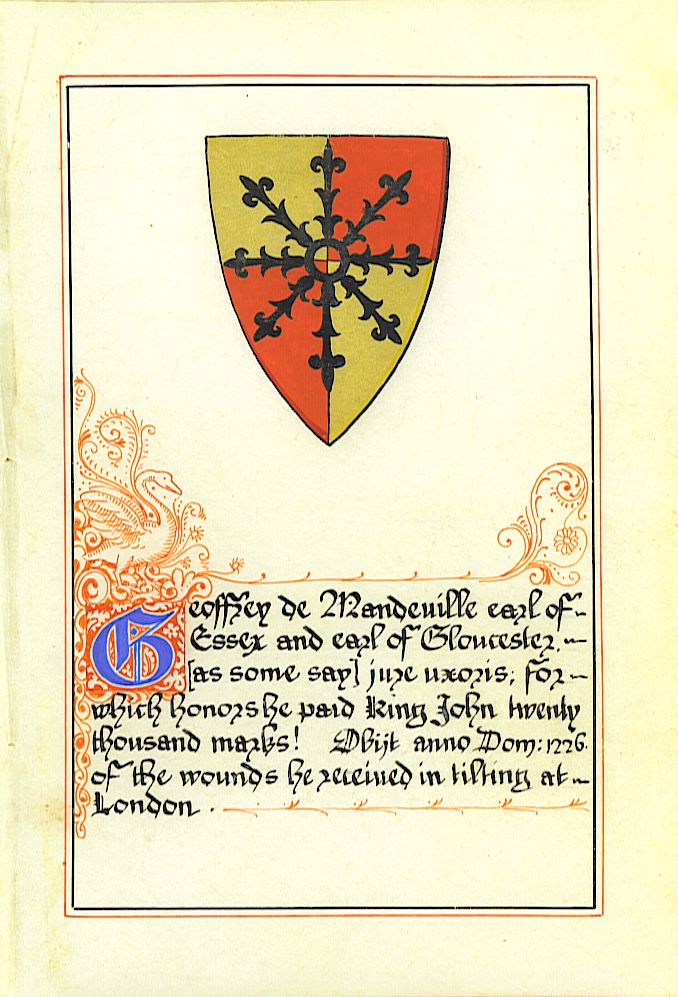 Geoffrey de Mandeuille earl of
Essex and earl of Gloucester,
[as some say] jure uxoris; for
which honors he paid King John twenty
thousand marks! Obijt anno Dom: 1226.
of the wounds he received in tilting at
London .